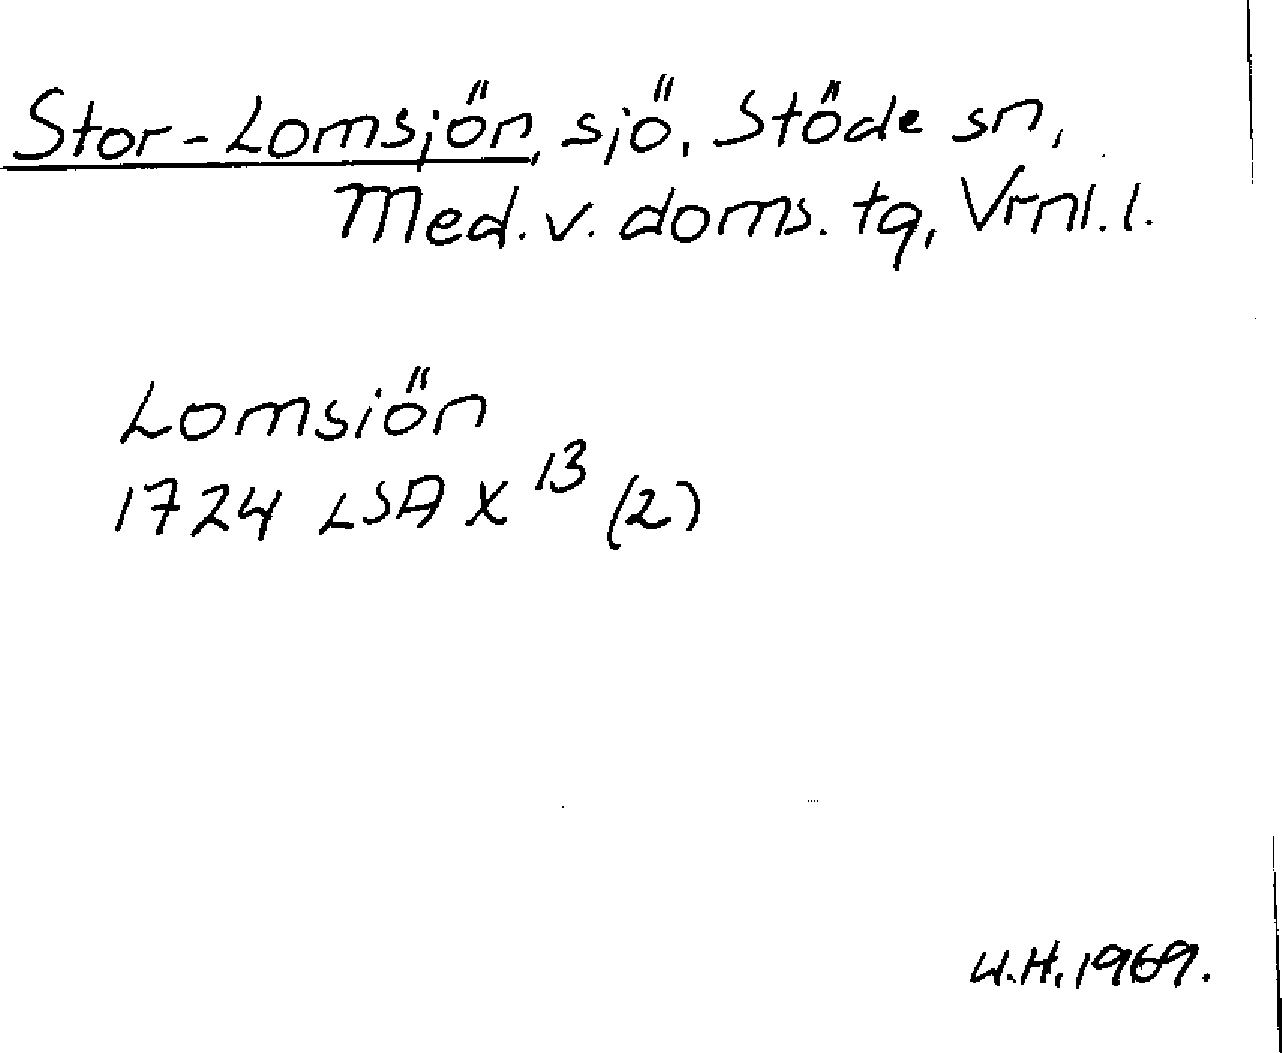 Stor-Lomsjön, sjö, Stöde sn,
Med. v. doms. tg, Vrnl. l.
Lomsiön
1724 LSA X 13 (2)
U.H. 1969.